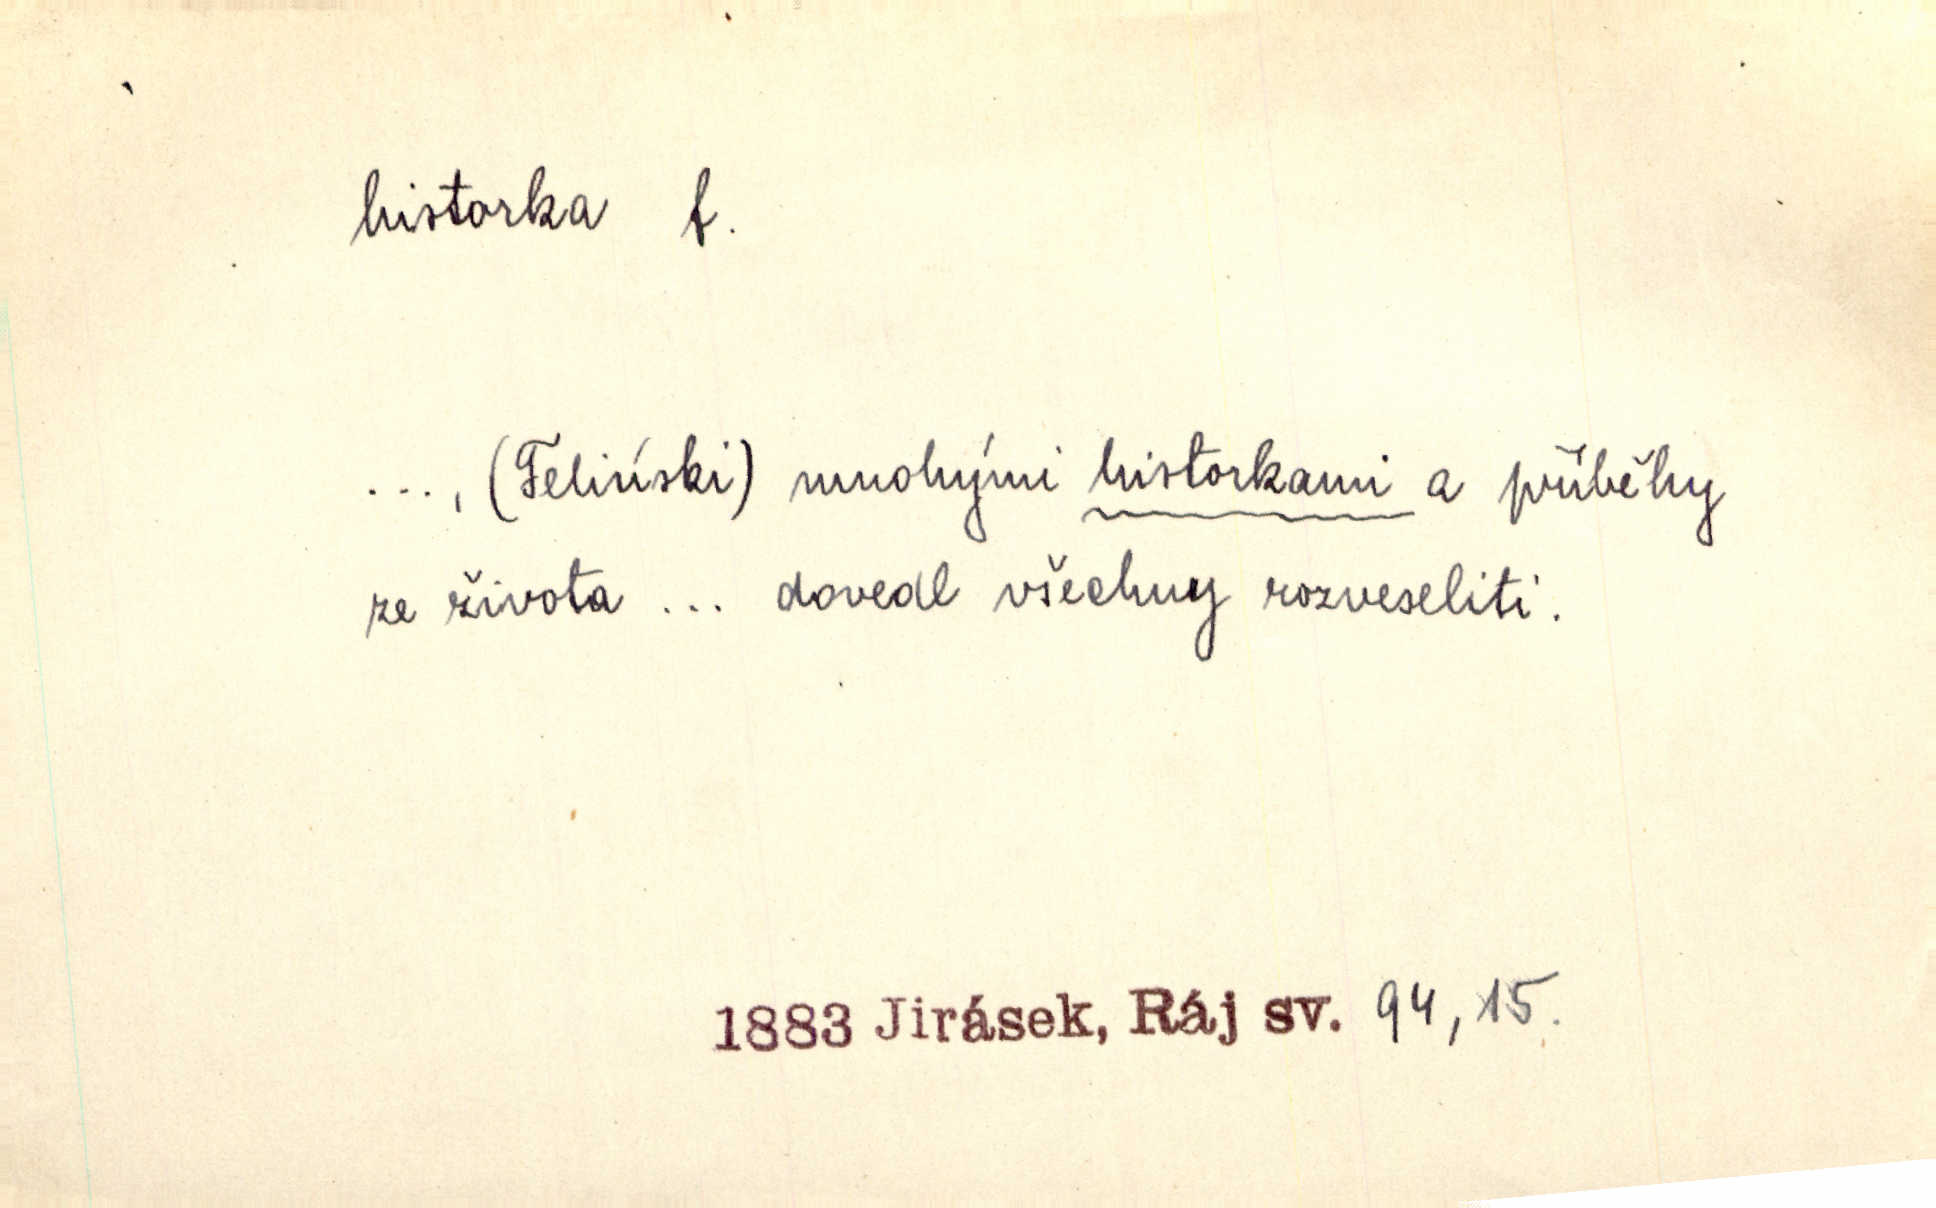 historka f.
..., (Feliński) mnohými historkami a příběhy
ze života ... dovedl všechny rozveseliti.
1883 Jirásek, Ráj sv. 94, 15.